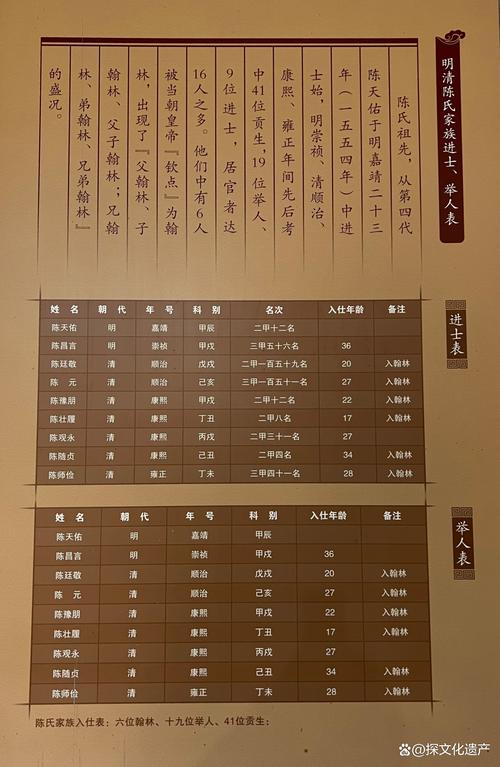 明清陈氏家族进士、举人表
陈氏祖先，从第四代
陈天佑于明嘉靖二十三
年（一五五四年）中进
士始，明崇祯、清顺治、
康熙、雍正年间先后考
中41位贡生，19位举人、
9位进士，居官者达
16人之多。他们中有6人
被当朝皇帝『钦点』为翰
林，出现了『父翰林、子
翰林、父子翰林；兄翰
林、弟翰林、兄弟翰林』
的盛况。
进士表
姓 名 朝 代 年 号 科 别 名次 入仕年龄 备注
陈天佑 明 嘉靖 甲辰 二甲十二名
陈昌言 明 崇祯 甲戌 三甲五十六名 36
陈廷敬 清 顺治 戊戌 二甲一百五十九名 20 入翰林
陈 元 清 顺治 己亥 三甲一百五十一名 27 入翰林
陈豫朋 清 康熙 甲戌 二甲十二名 22 入翰林
陈壮履 清 康熙 丁丑 二甲八名 17 入翰林
陈观永 清 康熙 丙戌 二甲三十一名 27
陈随贞 清 康熙 己丑 二甲四名 34 入翰林
陈师俭 清 雍正 丁未 三甲四十一名 28 入翰林
举人表
姓 名 朝 代 年 号 科 别 入仕年龄 备注
陈天佑 明 嘉靖 甲辰
陈昌言 明 崇祯 甲戌 36
陈廷敬 清 顺治 戊戌 20 入翰林
陈 元 清 顺治 己亥 27 入翰林
陈豫朋 清 康熙 甲戌 22 入翰林
陈壮履 清 康熙 丁丑 17 入翰林
陈观永 清 康熙 丙戌 27
陈随贞 清 康熙 己丑 34 入翰林
陈师俭 清 雍正 丁未 28 入翰林
陈氏家族入仕表：六位翰林、十九位举人、41位贡生：
@探文化遗产